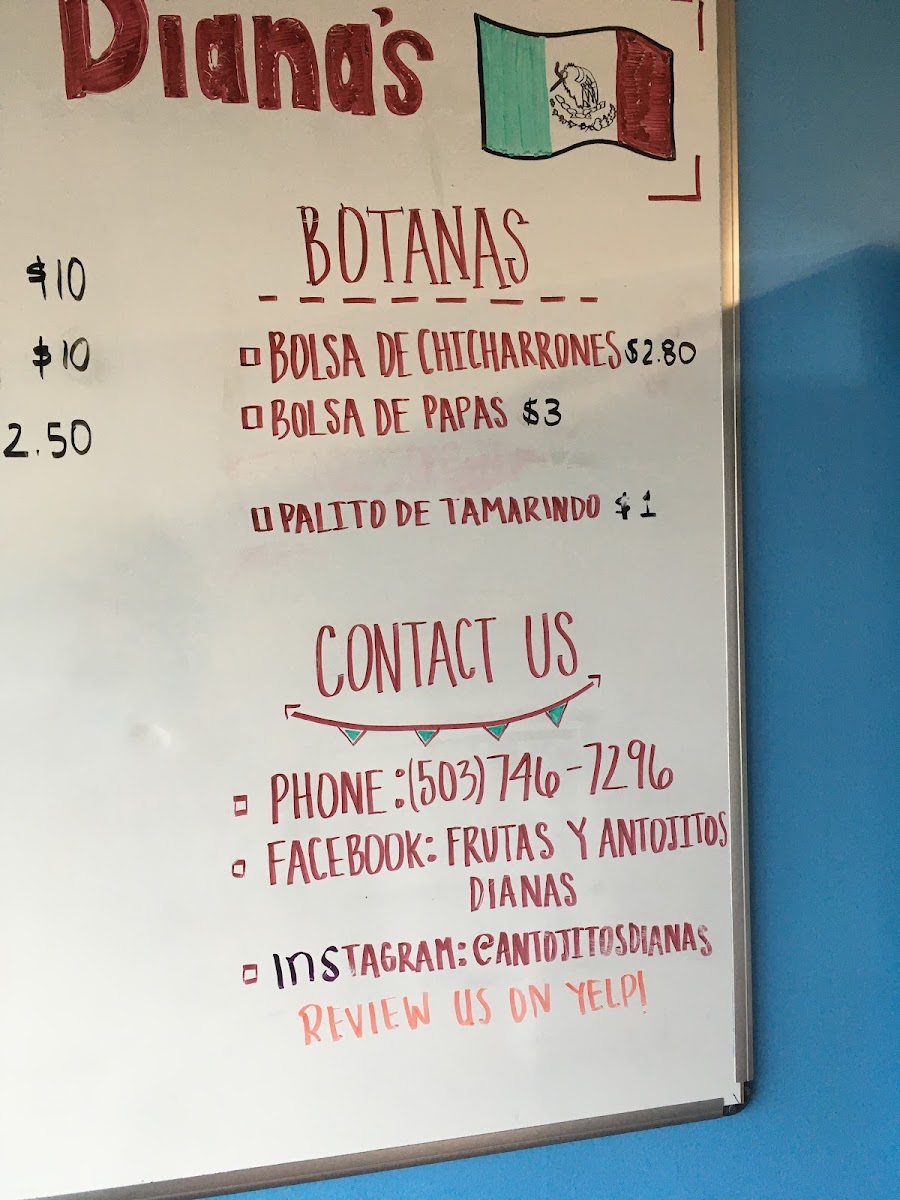 Diana's
$10
$10
2.50
BOTANAS
BOLSA DE CHICHARRONES $2.80
BOLSA DE PAPAS $3
PALITO DE TAMARINDO $1
CONTACT US
PHONE: (503) 746-7296
FACEBOOK: FRUTAS Y ANTOJITOS
DIANAS
INSTAGRAM: @ANTOJITOSDIANAS
REVIEW US ON YELP!